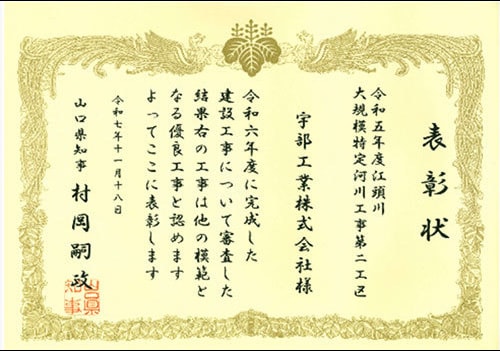 表彰状
令和五年度江頭川
大規模特定河川工事第二工区
宇部工業株式会社様
令和六年度に完成した
建設工事について審査した
結果右の工事は他の模範と
なる優良工事と認めます
よってここに表彰します
令和七年十一月十八日
山口県知事 村岡嗣政
山口県
知事